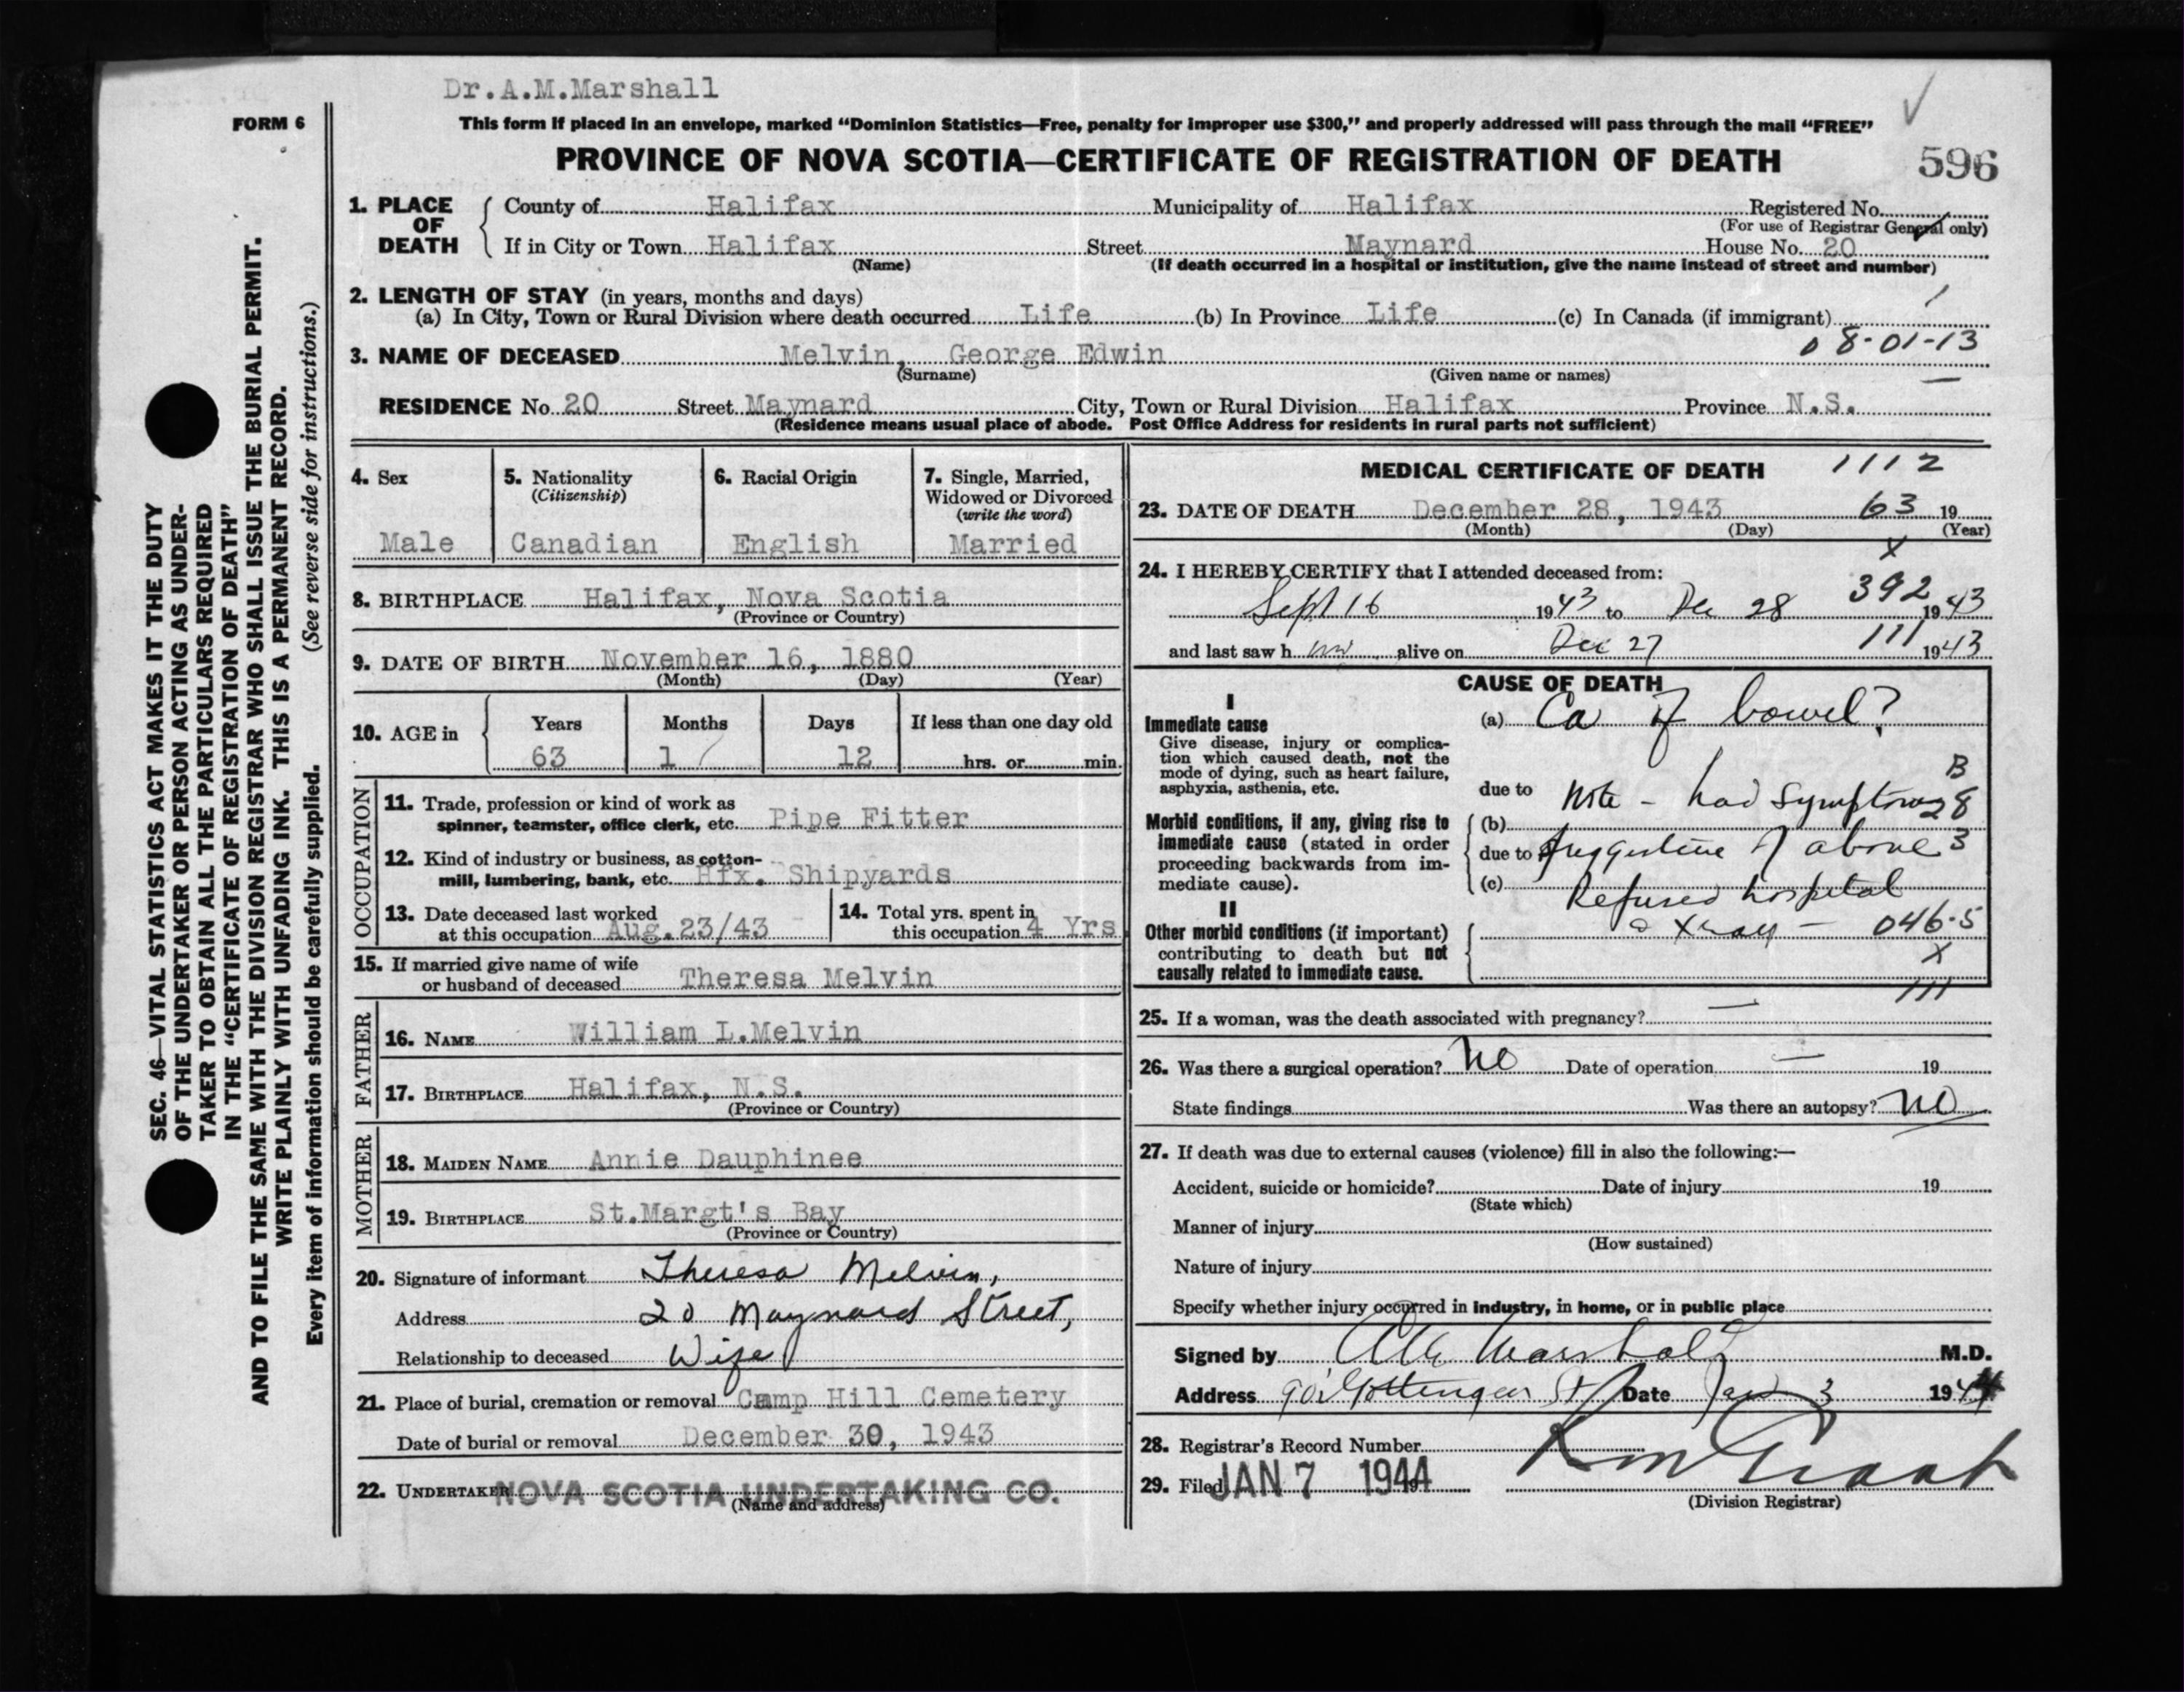 Dr.A.M.Marshall
FORM 6
This form if placed in an envelope, marked “Dominion Statistics—Free, penalty for improper use $300,” and properly addressed will pass through the mail “FREE”
PROVINCE OF NOVA SCOTIA—CERTIFICATE OF REGISTRATION OF DEATH 596
1. PLACE OF DEATH
County of Halifax Municipality of Halifax Registered No.
(For use of Registrar General only)
If in City or Town Halifax Street Maynard House No. 20
(Name) (If death occurred in a hospital or institution, give the name instead of street and number)
2. LENGTH OF STAY (in years, months and days)
(a) In City, Town or Rural Division where death occurred Life (b) In Province Life (c) In Canada (if immigrant)
3. NAME OF DECEASED Melvin, George Edwin 08-01-13
(Surname) (Given name or names)
RESIDENCE No. 20 Street Maynard City, Town or Rural Division Halifax Province N.S.
(Residence means usual place of abode. Post Office Address for residents in rural parts not sufficient)
4. Sex
Male
5. Nationality
(Citizenship)
Canadian
6. Racial Origin
English
7. Single, Married,
Widowed or Divorced
(write the word)
Married
8. BIRTHPLACE Halifax, Nova Scotia
(Province or Country)
9. DATE OF BIRTH November 16, 1880
(Month) (Day) (Year)
10. AGE in
Years Months Days If less than one day old
63 1 12 hrs. or min.
OCCUPATION
11. Trade, profession or kind of work as
spinner, teamster, office clerk, etc. Pipe Fitter
12. Kind of industry or business, as cotton-
mill, lumbering, bank, etc. Hfx. Shipyards
13. Date deceased last worked
at this occupation Aug.23/43
14. Total yrs. spent in
this occupation 4 Yrs
15. If married give name of wife
or husband of deceased Theresa Melvin
FATHER
16. NAME William L.Melvin
17. BIRTHPLACE Halifax, N.S.
(Province or Country)
MOTHER
18. MAIDEN NAME Annie Dauphinee
19. BIRTHPLACE St.Margt's Bay
(Province or Country)
20. Signature of informant Theresa Melvin,
Address 20 Maynard Street,
Relationship to deceased Wife
21. Place of burial, cremation or removal Camp Hill Cemetery
Date of burial or removal December 30, 1943
22. UNDERTAKER NOVA SCOTIA UNDERTAKING CO.
(Name and address)
MEDICAL CERTIFICATE OF DEATH 1112
23. DATE OF DEATH December 28, 1943 63 19
(Month) (Day) (Year)
X
24. I HEREBY CERTIFY that I attended deceased from:
392
Sept 16 1943 to Dec 28 1943
111
and last saw h im alive on Dec 27 1943
CAUSE OF DEATH
I
Immediate cause
Give disease, injury or complica-
tion which caused death, not the
mode of dying, such as heart failure,
asphyxia, asthenia, etc.
(a) Ca of bowel?
B
due to Note - had symptoms 28
Morbid conditions, if any, giving rise to
immediate cause (stated in order
proceeding backwards from im-
mediate cause).
(b)
due to suggestive of above 3
(c) Refused hospital
II
Other morbid conditions (if important)
contributing to death but not
causally related to immediate cause.
Xray - 046.5
X
111
25. If a woman, was the death associated with pregnancy? —
26. Was there a surgical operation? No Date of operation — 19
State findings Was there an autopsy? No
27. If death was due to external causes (violence) fill in also the following:—
Accident, suicide or homicide? Date of injury 19
(State which)
Manner of injury
(How sustained)
Nature of injury
Specify whether injury occurred in industry, in home, or in public place
Signed by A M Marshall M.D.
Address Gottingen St Date Jan 3 1944
28. Registrar's Record Number
29. Filed JAN 7 1944 19
(Division Registrar)
SEC. 46—VITAL STATISTICS ACT MAKES IT THE DUTY
OF THE UNDERTAKER OR PERSON ACTING AS UNDER-
TAKER TO OBTAIN ALL THE PARTICULARS REQUIRED
IN THE “CERTIFICATE OF REGISTRATION OF DEATH”
AND TO FILE THE SAME WITH THE DIVISION REGISTRAR WHO SHALL ISSUE THE BURIAL PERMIT.
WRITE PLAINLY WITH UNFADING INK. THIS IS A PERMANENT RECORD.
Every item of information should be carefully supplied. (See reverse side for instructions.)